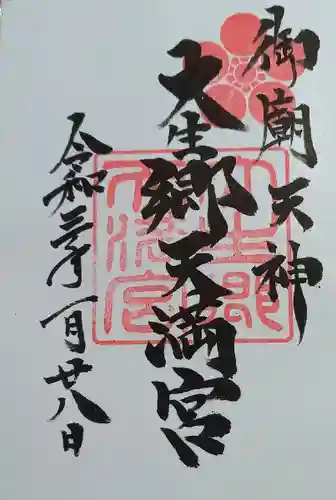 御廟天神
大生郷天満宮
令和三年一月廿八日
大生郷
天満宮